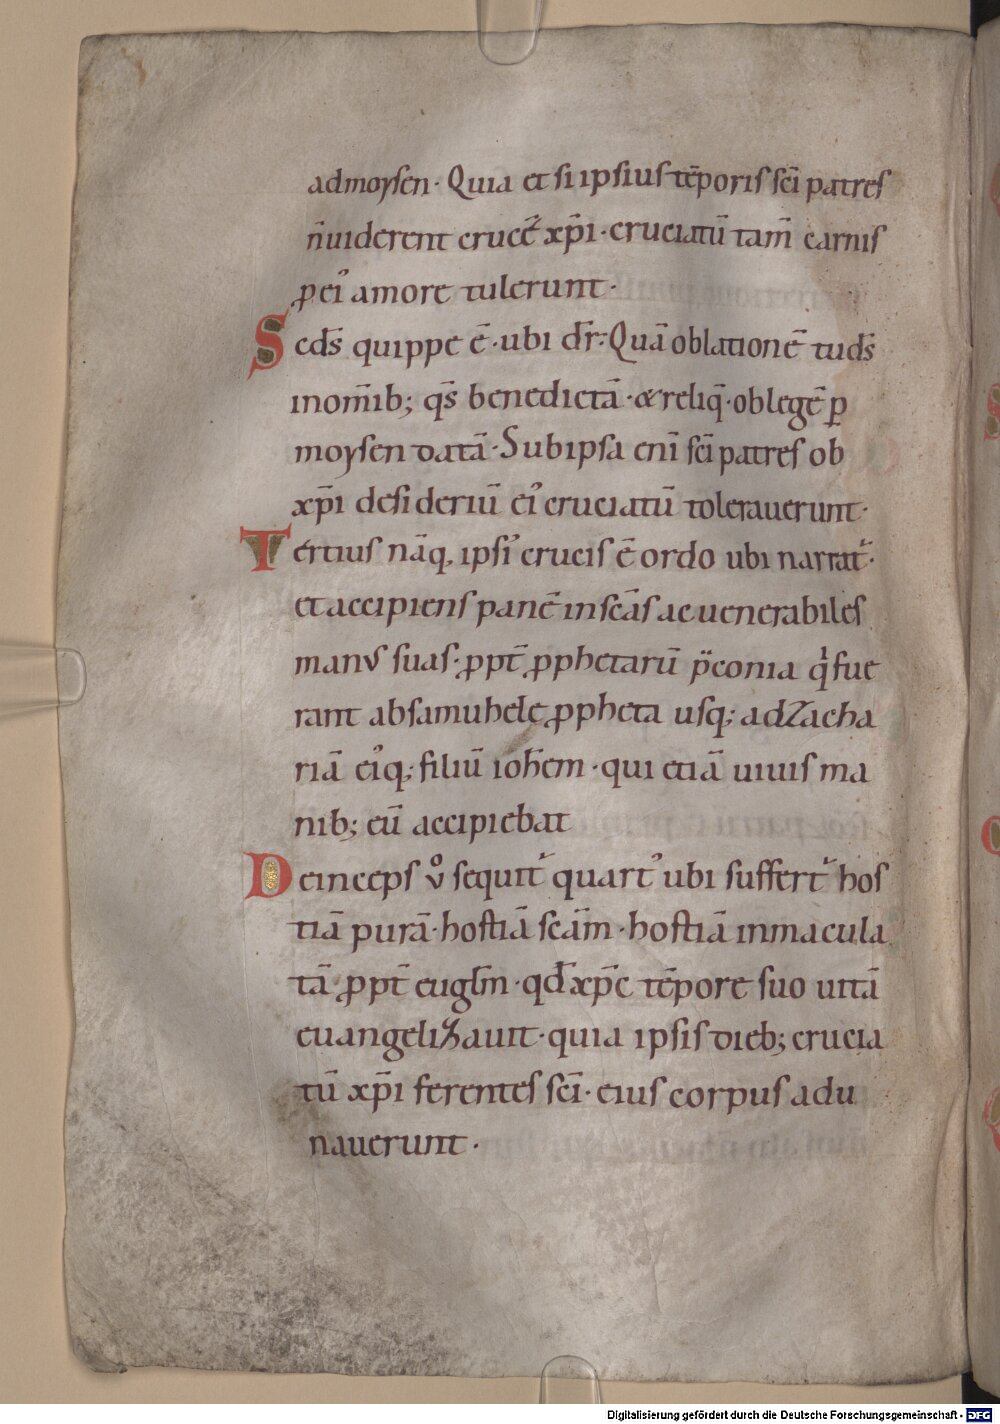 admoysen · Quia et si ipsius tēporis sc̄i patres
n̄ uiderent crucē xp̄i · cruciatū tam̄ carnis
ꝓ ei᾽ amore tulerunt ·
Scds̄ quippe ē · ubi dr̄ · Quā oblationē tu ds̄
in om̄ib; qs̄ benedictā · & reliq̄ · ob legē ꝑ
moysen datā · Sub ipsa eni̅ sc̄i patres ob
xp̄i desideriū ei᾽ cruciatū tolerauerunt ·
Tertius nāq, ipsi᾽ crucis ē ordo ubi narrat᷑ ·
et accipiens panē in scās ac uenerabiles
manus suas · ꝓpt̄ ꝓphetarū p̈conia qͥ fue
rant absamuhele ꝓpheta usq; ad Zacha
riā ei᾽q; filiū ioh̄em · qui etiā uiuis ma
nib; eū accipiebat
Deinceps v̊ sequit᷑ quart᾽ ubi suffert᷑ hos
tiā purā · hostiā scām · hostiā inmacula
tā · ꝓpt̄ euglm̄ · qd̄ xp̄c tēpore suo uitā
euangelizauit · quia ipsis dieb; crucia
tū xp̄i ferentes sc̄i · eius corpus adu
nauerunt ·
Digitalisierung gefördert durch die Deutsche Forschungsgemeinschaft - DFG